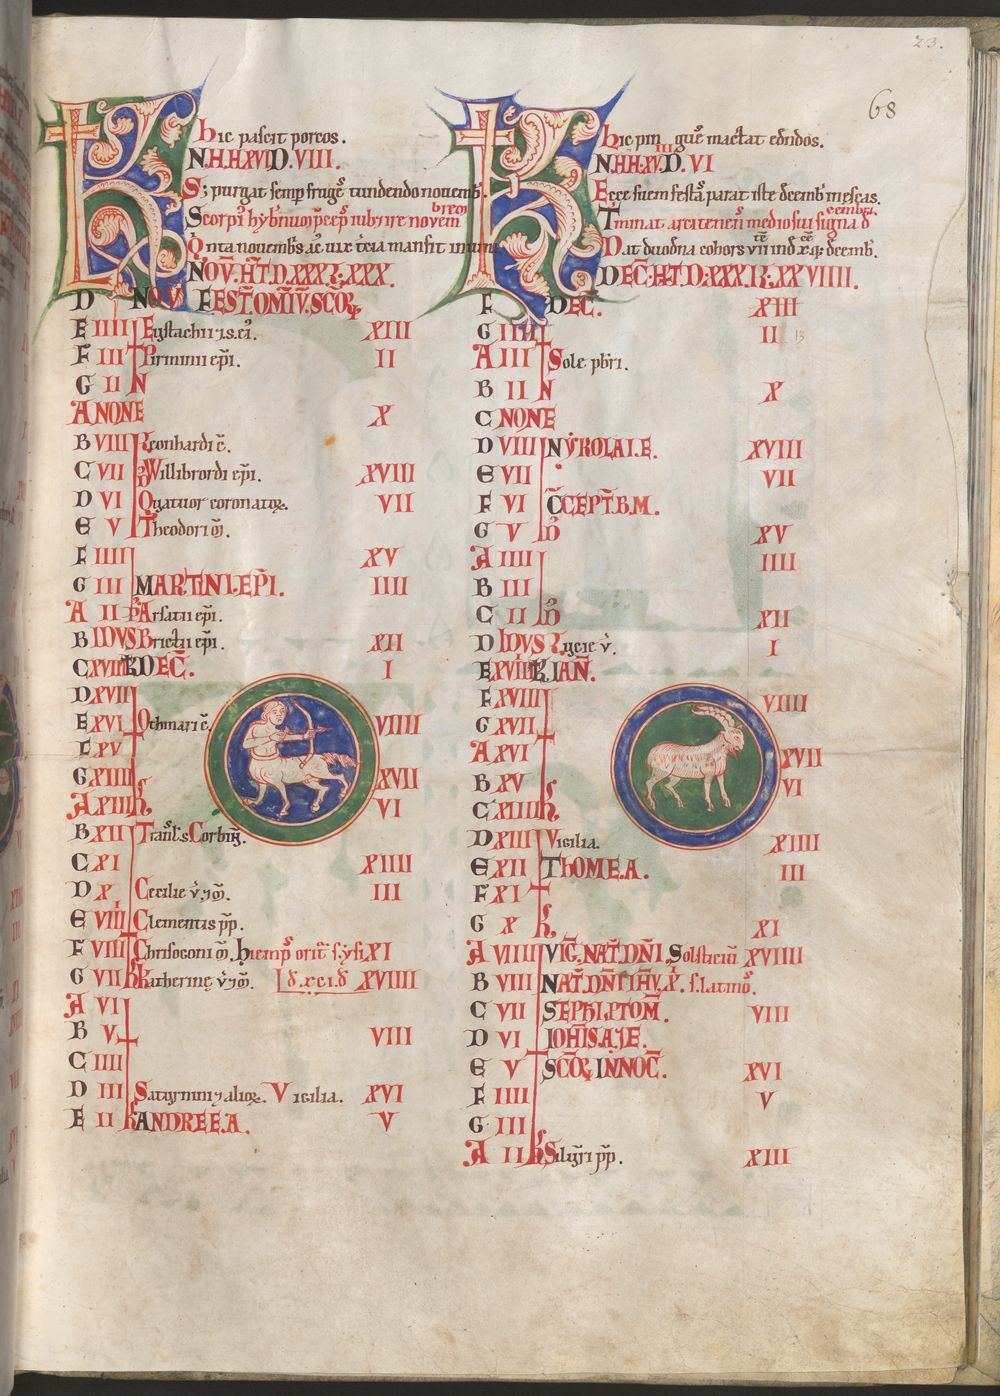 23.
68
KL
hic pascit porcos.
N.H.H.XVI D. VIII.
S; purgat semp fruge tundendo novemb.
Scorp hybnu p̄cep iubet ire novem
breq
Qnta novembs ac uix tcia mansit in urna
NOV. HT D. XXX L. XXX.
D NOV FEST. OMIV. SCOR
E IIII Eustachii 7 s. ei. XIII
F III Pirminii epi. II
G II N
A NONE X
B VIII Leonhardi c.
C VII Willibrordi epi. XVIII
D VI Quatuor coronator. VII
E V Theodori m.
F IIII XV
G III MARTINI. EPI. IIII
A II Arsatii epi.
B IDVS Brictii epi. XII
C XVIII K DEC. I
D XVII
E XVI Othmari c. VIIII
F XV
G XIIII XVII
A XIII VI
B XII Transl. S. Corbin.
C XI XIIII
D X Cecilie v. 7 m. III
E VIIII Clementis pp.
F VIII Chrisogoni m. hiemps orit XI
G VII Katherine v 7 m. XVIIII
A VI
B V VIII
C IIII
D III Saturnini 7 alior. Vigilia. XVI
E II ANDREE. A. V
KL
hic pin gue mactat edridos.
N.H.H.XV. D. VI
Ecce suem festa parat iste decemb mescas.
Tminat arcitenens medio sui signa d
cembri.
Dat duodna cohors VII ind X q; decemb.
DEC. HT D. XXXI L. XXVIIII.
F DEC. XIII
G IIII II 13
A III Sole pbri.
B II N X
C NONE
D VIII NYKOLAI. E. XVIII
E VII VII
F VI CCEPT. B. M.
G V XV
A IIII IIII
B III
C II XII
D IDVS Lucie v. I
E XVIIII K IAN.
F XVIII VIIII
G XVII
A XVI XVII
B XV VI
C XIIII
D XIII Vigilia. XIIII
E XII THOME. A. III
F XI
G X XI
A VIIII VIG. NAT. DNI. Solsticiu XVIIII
B VIII NAT. DNI IHV. XP. s. latinos.
C VII STEPHI. PTOM. VIII
D VI IOHIS. A 7 E.
E V SCOR INNOC. XVI
F IIII V
G III
A II Siluestri pp. XIII